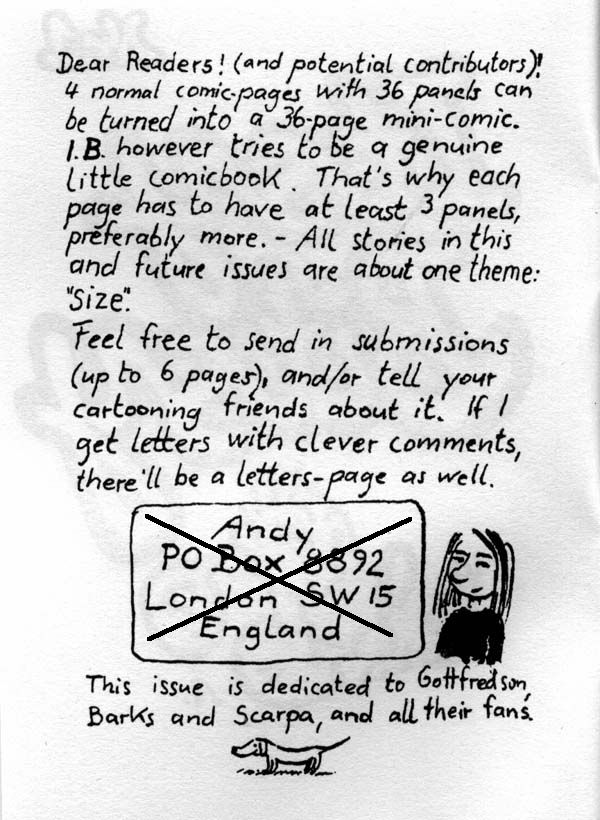 Dear Readers! (and potential contributors)!
4 normal comic-pages with 36 panels can
be turned into a 36-page mini-comic.
I.B. however tries to be a genuine
little comicbook. That's why each
page has to have at least 3 panels,
preferably more. - All stories in this
and future issues are about one theme:
"Size".
Feel free to send in submissions
(up to 6 pages), and/or tell your
cartooning friends about it. If I
get letters with clever comments,
there'll be a letters-page as well.
Andy
PO Box 8892
London SW 15
England
This issue is dedicated to Gottfredson,
Barks and Scarpa, and all their fans.